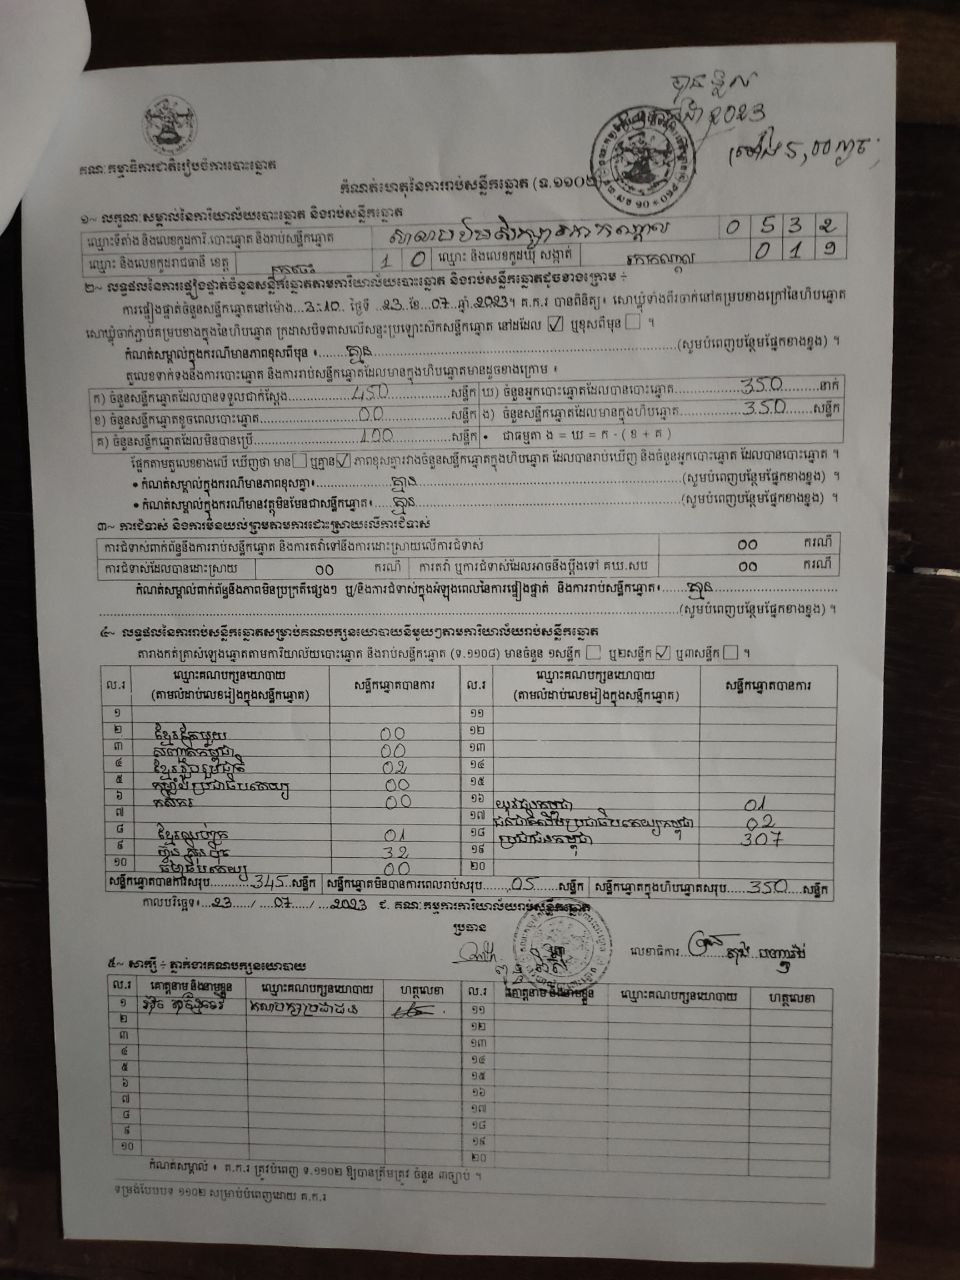 បានទទួល
2023
គណៈកម្មាធិការជាតិរៀបចំការបោះឆ្នោត
កំណត់ហេតុនៃការរាប់សន្លឹកឆ្នោត (ទ.១១០២)
១~ លក្ខណៈសម្គាល់នៃការិយាល័យបោះឆ្នោត និងរាប់សន្លឹកឆ្នោត
ឈ្មោះទីតាំង និងលេខកូដការិ.បោះឆ្នោត និងរាប់សន្លឹកឆ្នោត 0 5 3 2
ឈ្មោះ និងលេខកូដរាជធានី ខេត្ត ក្រចេះ 1 0 ឈ្មោះ និងលេខកូដឃុំ សង្កាត់ រកាកណ្តាល 0 1 9
២~ លទ្ធផលនៃការផ្ទៀងផ្ទាត់ចំនួនសន្លឹកឆ្នោតតាមការិយាល័យបោះឆ្នោត និងរាប់សន្លឹកឆ្នោតដូចខាងក្រោម ÷
ការផ្ទៀងផ្ទាត់ចំនួនសន្លឹកឆ្នោតនៅម៉ោង...3:10 ថ្ងៃទី .23. ខែ.07..ឆ្នាំ.2023។ គ.ក.រ បានពិនិត្យ៖ សោឃ្លុំទាំងពីរចាក់នៅគម្របខាងក្រៅនៃហិបឆ្នោត
សោឃ្លុំចាក់ភ្ជាប់គម្របខាងក្នុងនៃហិបឆ្នោត ក្រដាសបិទពាសលើសន្ទះប្រឡោះសិកសន្លឹកឆ្នោត នៅដដែល ☑ ឬខុសពីមុន ☐ ។
កំណត់សម្គាល់ក្នុងករណីមានភាពខុសពីមុន ៖ គ្មាន (សូមបំពេញបន្ថែមផ្នែកខាងខ្នង) ។
តួលេខទាក់ទងនឹងការបោះឆ្នោត និងការរាប់សន្លឹកឆ្នោតដែលមានក្នុងហិបឆ្នោតមានដូចខាងក្រោម ៖
ក) ចំនួនសន្លឹកឆ្នោតដែលបានទទួលជាក់ស្តែង 450 សន្លឹក ឃ) ចំនួនអ្នកបោះឆ្នោតដែលបានបោះឆ្នោត 350 នាក់
ខ) ចំនួនសន្លឹកឆ្នោតខូចពេលបោះឆ្នោត 00 សន្លឹក ង) ចំនួនសន្លឹកឆ្នោតដែលមានក្នុងហិបឆ្នោត 350 សន្លឹក
គ) ចំនួនសន្លឹកឆ្នោតដែលមិនបានប្រើ 100 សន្លឹក • ជាធម្មតា ង = ឃ = ក - ( ខ + គ )
ផ្អែកតាមតួលេខខាងលើ ឃើញថា មាន ☐ ឬគ្មាន ☑ ភាពខុសគ្នារវាងចំនួនសន្លឹកឆ្នោតក្នុងហិបឆ្នោត ដែលបានរាប់ឃើញ និងចំនួនអ្នកបោះឆ្នោត ដែលបានបោះឆ្នោត ។
• កំណត់សម្គាល់ក្នុងករណីមានភាពខុសគ្នា៖ គ្មាន (សូមបំពេញបន្ថែមផ្នែកខាងខ្នង) ។
• កំណត់សម្គាល់ក្នុងករណីមានវត្ថុមិនមែនជាសន្លឹកឆ្នោត៖ គ្មាន (សូមបំពេញបន្ថែមផ្នែកខាងខ្នង) ។
៣~ ការជំទាស់ និងការមិនយល់ព្រមតាមការដោះស្រាយលើការជំទាស់
ការជំទាស់ពាក់ព័ន្ធនឹងការរាប់សន្លឹកឆ្នោត និងការតវ៉ាទៅនឹងការដោះស្រាយលើការជំទាស់ 00 ករណី
ការជំទាស់ដែលបានដោះស្រាយ 00 ករណី ការតវ៉ា ឬការជំទាស់ដែលអាចនឹងប្តឹងទៅ គឃ.សប 00 ករណី
កំណត់សម្គាល់ពាក់ព័ន្ធនឹងភាពមិនប្រក្រតីផ្សេងៗ ឬ/និងការជំទាស់ក្នុងអំឡុងពេលនៃការផ្ទៀងផ្ទាត់ និងការរាប់សន្លឹកឆ្នោត៖ គ្មាន
(សូមបំពេញបន្ថែមផ្នែកខាងខ្នង) ។
៤~ លទ្ធផលនៃការរាប់សន្លឹកឆ្នោតសម្រាប់គណបក្សនយោបាយនីមួយៗតាមការិយាល័យរាប់សន្លឹកឆ្នោត
តារាងកត់ត្រាសំឡេងឆ្នោតតាមការិយាល័យបោះឆ្នោត និងរាប់សន្លឹកឆ្នោត (ទ.១១០៨) មានចំនួន ១សន្លឹក ☐ ឬ២សន្លឹក ☑ ឬ៣សន្លឹក ☐ ។
ល.រ ឈ្មោះគណបក្សនយោបាយ (តាមលំដាប់លេខរៀងក្នុងសន្លឹកឆ្នោត) សន្លឹកឆ្នោតបានការ ល.រ ឈ្មោះគណបក្សនយោបាយ (តាមលំដាប់លេខរៀងក្នុងសន្លឹកឆ្នោត) សន្លឹកឆ្នោតបានការ
១ ១១
២ ខ្មែរតែមួយ 00 ១២
៣ សញ្ជាតិកម្ពុជា 00 ១៣
៤ ខ្មែររួបរួមជាតិ 02 ១៤
៥ កម្លាំងប្រជាធិបតេយ្យ 00 ១៥
៦ កសិករ 00 ១៦ យុវជនកម្ពុជា 01
៧ ១៧ ជនជាតិដើមប្រជាធិបតេយ្យកម្ពុជា 02
៨ ខ្មែរឈប់ក្រ 01 ១៨ ប្រជាជនកម្ពុជា 307
៩ ហ៊្វុនស៊ិនប៉ិច 32 ១៩
១០ ធម្មាធិបតេយ្យ 00 ២០
សន្លឹកឆ្នោតបានការសរុប 345 សន្លឹក សន្លឹកឆ្នោតមិនបានការពេលរាប់សរុប 05 សន្លឹក សន្លឹកឆ្នោតក្នុងហិបឆ្នោតសរុប 350 សន្លឹក
កាលបរិច្ឆេទ៖ 23 / 07 / 2023 ជ. គណៈកម្មការការិយាល័យរាប់សន្លឹកឆ្នោត
ប្រធាន
លេខាធិការ
៥~ សាក្សី ÷ ភ្នាក់ងារគណបក្សនយោបាយ
ល.រ គោត្តនាម និងនាមខ្លួន ឈ្មោះគណបក្សនយោបាយ ហត្ថលេខា ល.រ គោត្តនាម និងនាមខ្លួន ឈ្មោះគណបក្សនយោបាយ ហត្ថលេខា
១ គណបក្សប្រជាជន ១១
២ ១២
៣ ១៣
៤ ១៤
៥ ១៥
៦ ១៦
៧ ១៧
៨ ១៨
៩ ១៩
១០ ២០
កំណត់សម្គាល់ ៖ គ.ក.រ ត្រូវបំពេញ ទ.១១០២ ឱ្យបានត្រឹមត្រូវ ចំនួន ៣ច្បាប់ ។
ទម្រង់បែបបទ ១១០២ សម្រាប់បំពេញដោយ គ.ក.រ